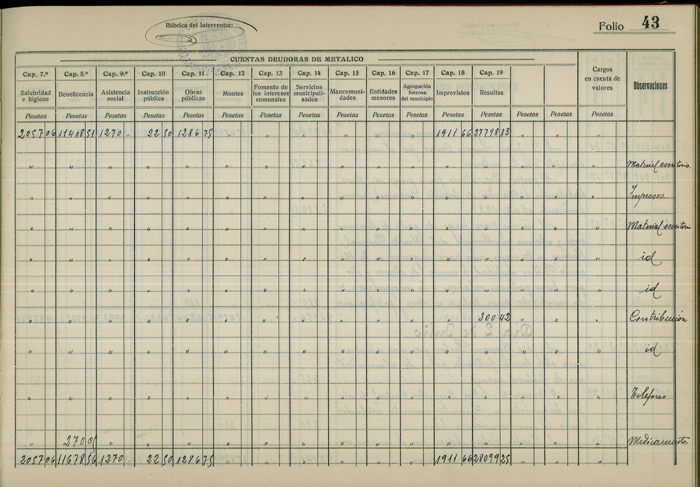 Rúbrica del Interventor:
Folio 43
CUENTAS DEUDORAS DE METALICO
Cap. 7.º Cap. 8.º Cap. 9.º Cap. 10 Cap. 11 Cap. 12 Cap. 13 Cap. 14 Cap. 15 Cap. 16 Cap. 17 Cap. 18 Cap. 19
Salubridad e higiene Beneficencia Asistencia social Instrucción pública Obras públicas Montes Fomento de los intereses comunales Servicios municipalizados Mancomunidades Entidades menores Agrupación forzosa del municipio Imprevistos Resultas Cargos en cuenta de valores Observaciones
Pesetas Pesetas Pesetas Pesetas Pesetas Pesetas Pesetas Pesetas Pesetas Pesetas Pesetas Pesetas Pesetas Pesetas Pesetas Pesetas
2057 06 11408 51 1270 - 22 50 1286 75 " " " " " " 1911 66 27798 83 " " "
" " " " " " " " " " " " " " " " Material escritorio
" " " " " " " " " " " " " " " " Impresos
" " " " " " " " " " " " " " " " Material escritorio
" " " " " " " " " " " " " " " " id
" " " " " " " " " " " " " " " " id
" " " " " " " " " " " " 300 42 " " " Contribución
" " " " " " " " " " " " " " " " id
" " " " " " " " " " " " " " " " Teléfono
" 270 05 " " " " " " " " " " " " " " Medicamentos
2057 06 11678 56 1270 - 22 50 1286 75 " " " " " " 1911 66 28099 25 " " "